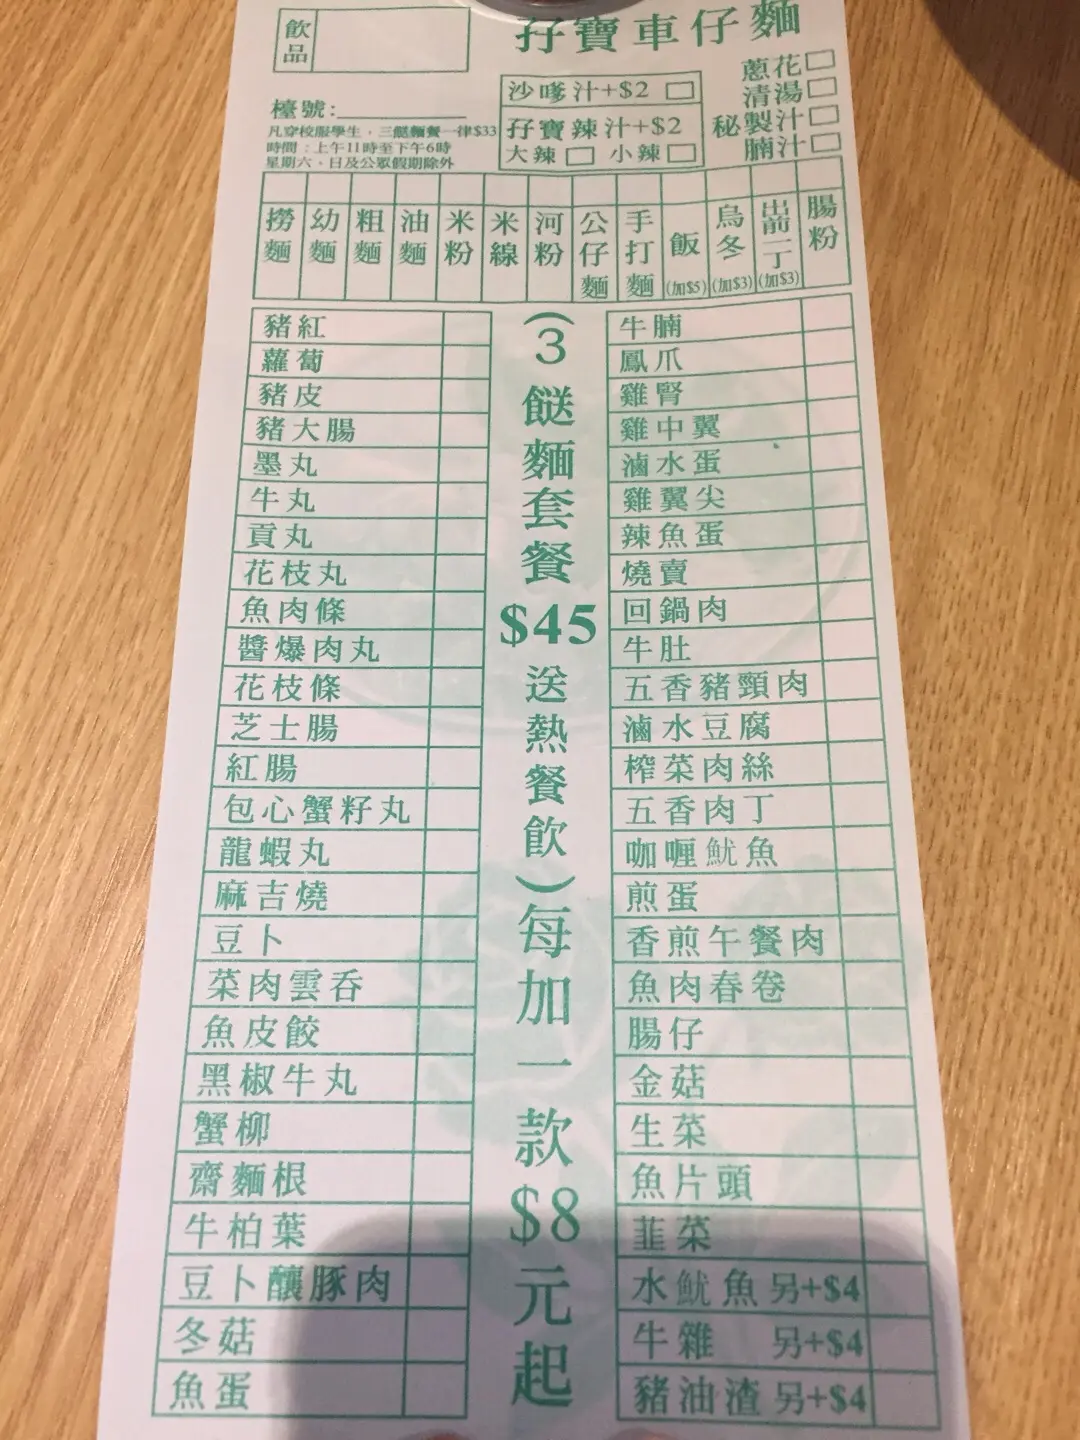 孖寶車仔麵
飲品
蔥花
清湯
秘製汁
腩汁
沙嗲汁+$2
孖寶辣汁+$2
大辣 小辣
檯號:
凡穿校服學生，三餸麵餐一律$33
時間：上午11時至下午6時
星期六、日及公眾假期除外
撈麵
幼麵
粗麵
油麵
米粉
米線
河粉
公仔麵
手打麵
飯(加$5)
烏冬(加$3)
出前一丁(加$3)
腸粉
豬紅
蘿蔔
豬皮
豬大腸
墨丸
牛丸
貢丸
花枝丸
魚肉條
醬爆肉丸
花枝條
芝士腸
紅腸
包心蟹籽丸
龍蝦丸
麻吉燒
豆卜
菜肉雲吞
魚皮餃
黑椒牛丸
蟹柳
齋麵根
牛柏葉
豆卜釀豚肉
冬菇
魚蛋
(3餸麵套餐$45送熱餐飲)每加一款$8元起
牛腩
鳳爪
雞腎
雞中翼
滷水蛋
雞翼尖
辣魚蛋
燒賣
回鍋肉
牛肚
五香豬頸肉
滷水豆腐
榨菜肉絲
五香肉丁
咖喱魷魚
煎蛋
香煎午餐肉
魚肉春卷
腸仔
金菇
生菜
魚片頭
韮菜
水魷魚 另+$4
牛雜 另+$4
豬油渣 另+$4